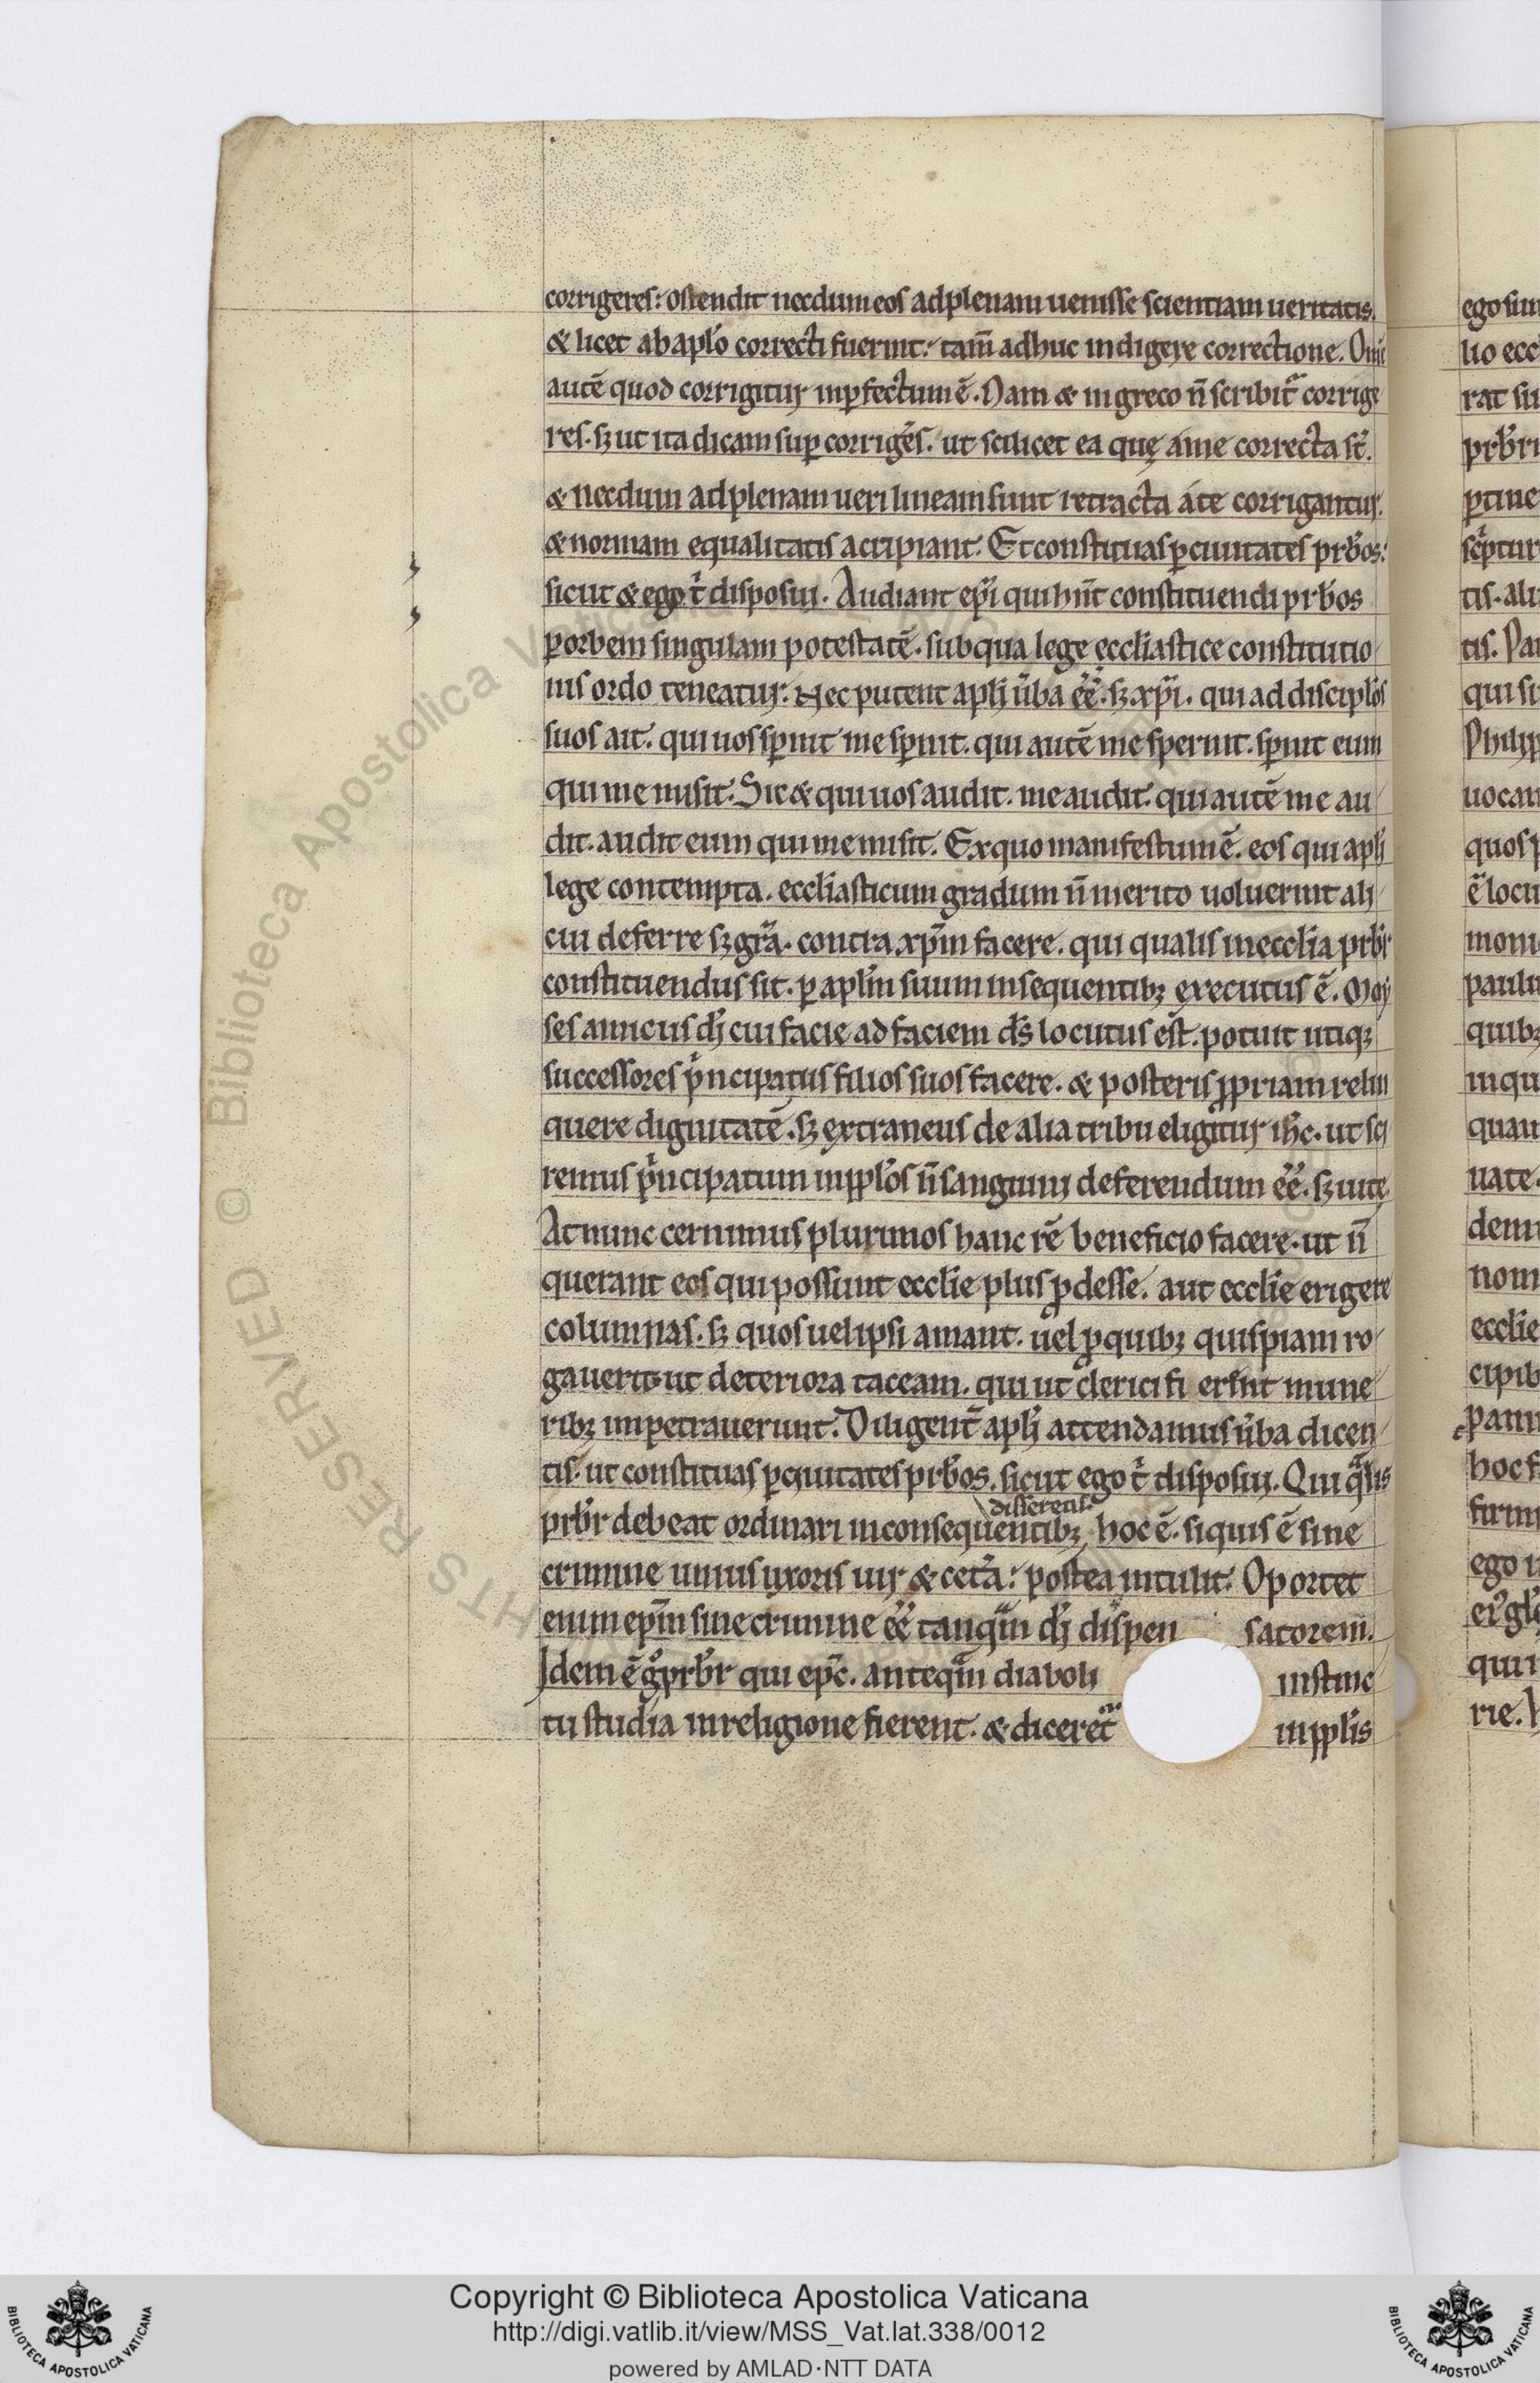 corrigeres: ostendit necdum eos ad plenam uenisse scientiam ueritatis.
& licet ab aplo᷒ correcti fuerint: tam̅ adhuc indigere correctione. Om̅e
autē quod corrigitur inꝑfectum ē. Nam & in greco n̅ scribit᷑ corrige
res. sꝫ ut ita dicam suꝑ corriges. ut scilicet ea quę a me correcta st̅.
& necdum ad plenam ueri lineam sunt retracta a te corrigantur.
& normam equalitatis accipiant. Et constituas ꝑ ciuitates prb̅os:
sicut & ego t̅ disposui. Audiant ep̅i qui hn̅t constituendi prb̅os
ꝑ orbem singulam potestatē. sub qua lege eccl̅iastice constitutio
nis ordo teneatur. Nec putent apl̅i u̅ba ee̅. sꝫ xp̅i. qui ad discipl̅os
suos ait. qui uos sꝑnit me sꝑnit. qui autē me spernit. sꝑnit eum
qui me misit. Sic & qui uos audit. me audit. qui autē me au
dit. audit eum qui me misit. Ex quo manifestum ē. eos qui apl̅i
lege contempta. eccl̅iasticum gradum n̅ merito uoluerint ali
cui deferre sꝫ gr̅a. contra xp̅m facere. qui qualis in eccl̅ia prb̅r
constituendus sit. ꝑ apl̅m suum in sequentibꝫ executus ē. Moy
ses amicus di̅ cui facie ad faciem ds̅ locutus est. potuit utiqꝫ
successores pͥncipatus filios suos facere. & posteris ꝓpriam relin
quere dignitatē. sꝫ extraneus de alia tribu eligitur ih̅c. ut sci
remus pͥncipatum in ppl̅os n̅ sanguini deferendum ee̅. sꝫ uite.
At nunc cernimus plurimos hanc rē beneficio facere. ut n̅
querant eos qui possunt eccl̅ie plus ꝓdesse. aut eccl̅ie erigere
columnas. sꝫ quos uel ipsi amant. uel ꝓ quibꝫ quispiam ro
gauerit ut deteriora taceam. qui ut clerici fi erent mune
ribꝫ impetrauerunt. Diligent̅ apl̅i attendamus u̅ba dicen
tis. ut constituas ꝑ ciuitates prb̅os. sicut ego t̅ disposui. Qui qͣlis
disserens.
prb̅r debeat ordinari in consequentibꝫ hoc ē. siquis ē sine
crimine unius uxoris uir & cet̅a: postea intulit. Oportet
enim ep̅m sine crimine ee̅ tanqͣm di̅ dispen satorem.
Idem ē gͦ prb̅r qui ep̅c. anteqͣm diaboli instinc
tu studia in religione fierent. & diceret᷑ in ppl̅is
ego sum
lio ecc
rat su
prb̅ri
ꝑtine
sc̅ptur
tis. ali
tis. Pau
qui si
Philip
uocan
quos p
ē locu
mon
paulu
quibꝫ
in qu
quan
uate.
dem
nom
eccl̅ie
cipib
pann
hoc f
firm
ego i
qui i
rie.
Copyright © Biblioteca Apostolica Vaticana
http://digi.vatlib.it/view/MSS_Vat.lat.338/0012
powered by AMLAD·NTT DATA
BIBLIOTECA APOSTOLICA VATICANA
BIBLIOTECA APOSTOLICA VATICANA